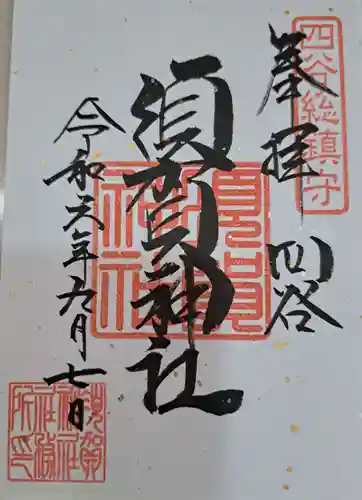 四谷総鎮守
奉拝 四谷
須賀神社
須賀神社
令和六年九月七日
須賀神社社務所印